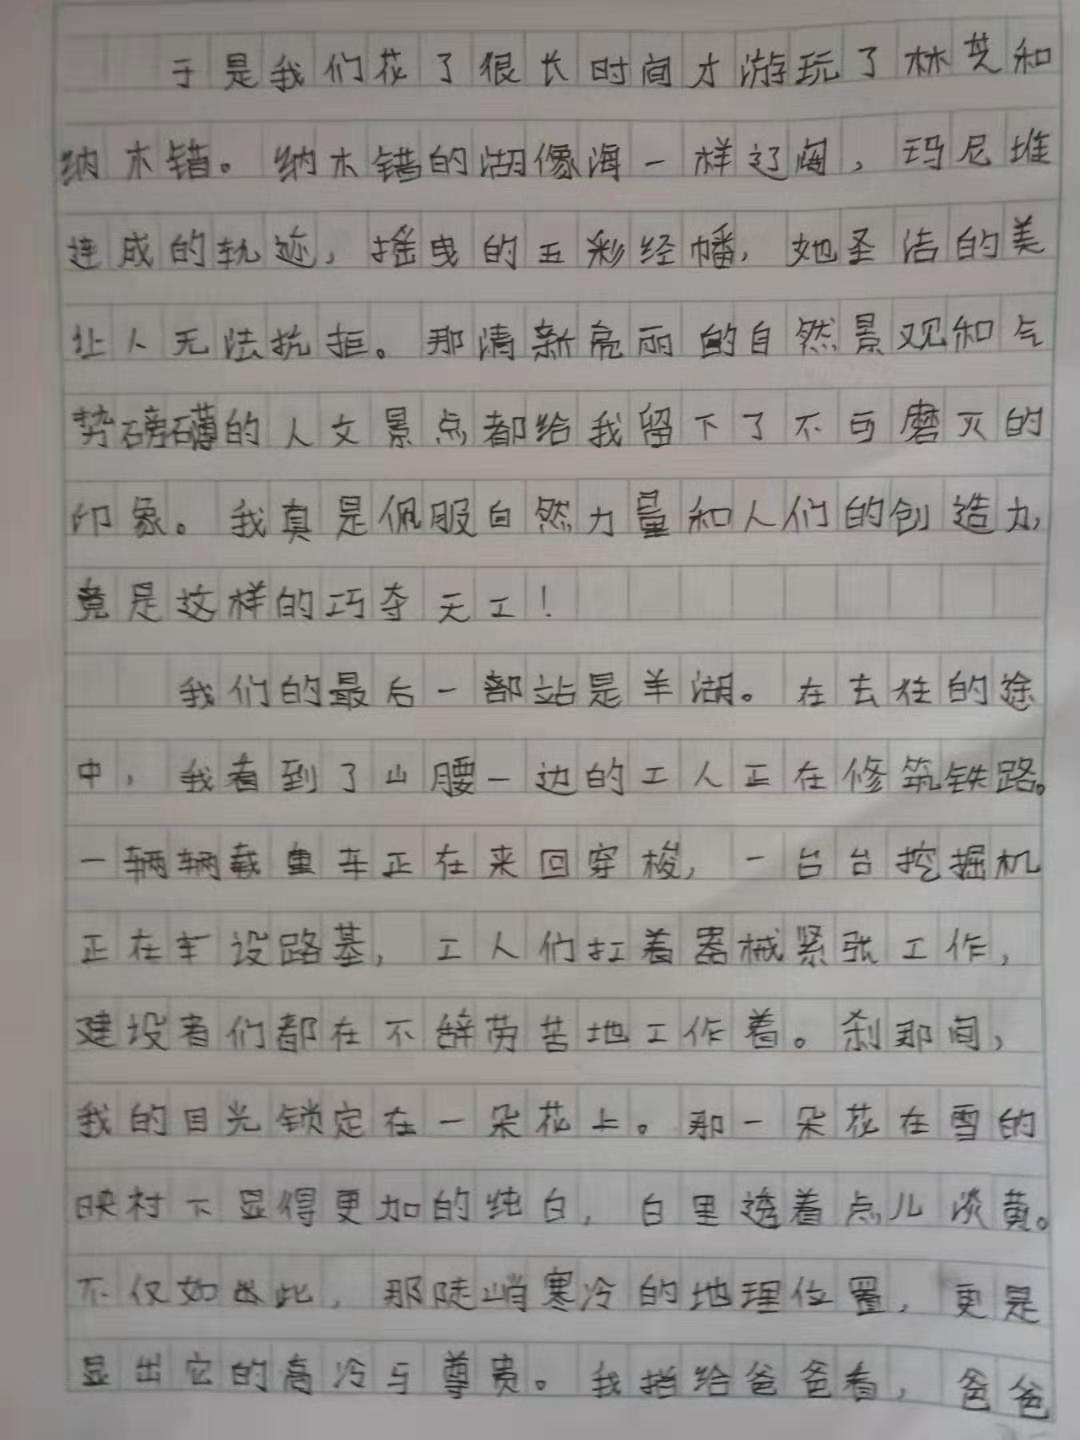 于是我们花了很长时间才游玩了林芝和
纳木错。纳木错的湖像海一样辽阔，玛尼堆
连成的轨迹，摇曳的五彩经幡，她圣洁的美
让人无法抗拒。那清新亮丽的自然景观和气
势磅礴的人文景点都给我留下了不可磨灭的
印象。我真是佩服自然力量和人们的创造力，
竟是这样的巧夺天工！
我们的最后一都站是羊湖。在去往的途
中，我看到了山腰一边的工人正在修筑铁路。
一辆辆载重车正在来回穿梭，一台台挖掘机
正在车设路基，工人们扛着器械紧张工作，
建设者们都在不辞劳苦地工作着。刹那间，
我的目光锁定在一朵花上。那一朵花在雪的
映村下显得更加的纯白，白里透着点儿淡黄。
不仅如此，那陡峭寒冷的地理位置，更是
显出它的高冷与尊贵。我指给爸爸看，爸爸